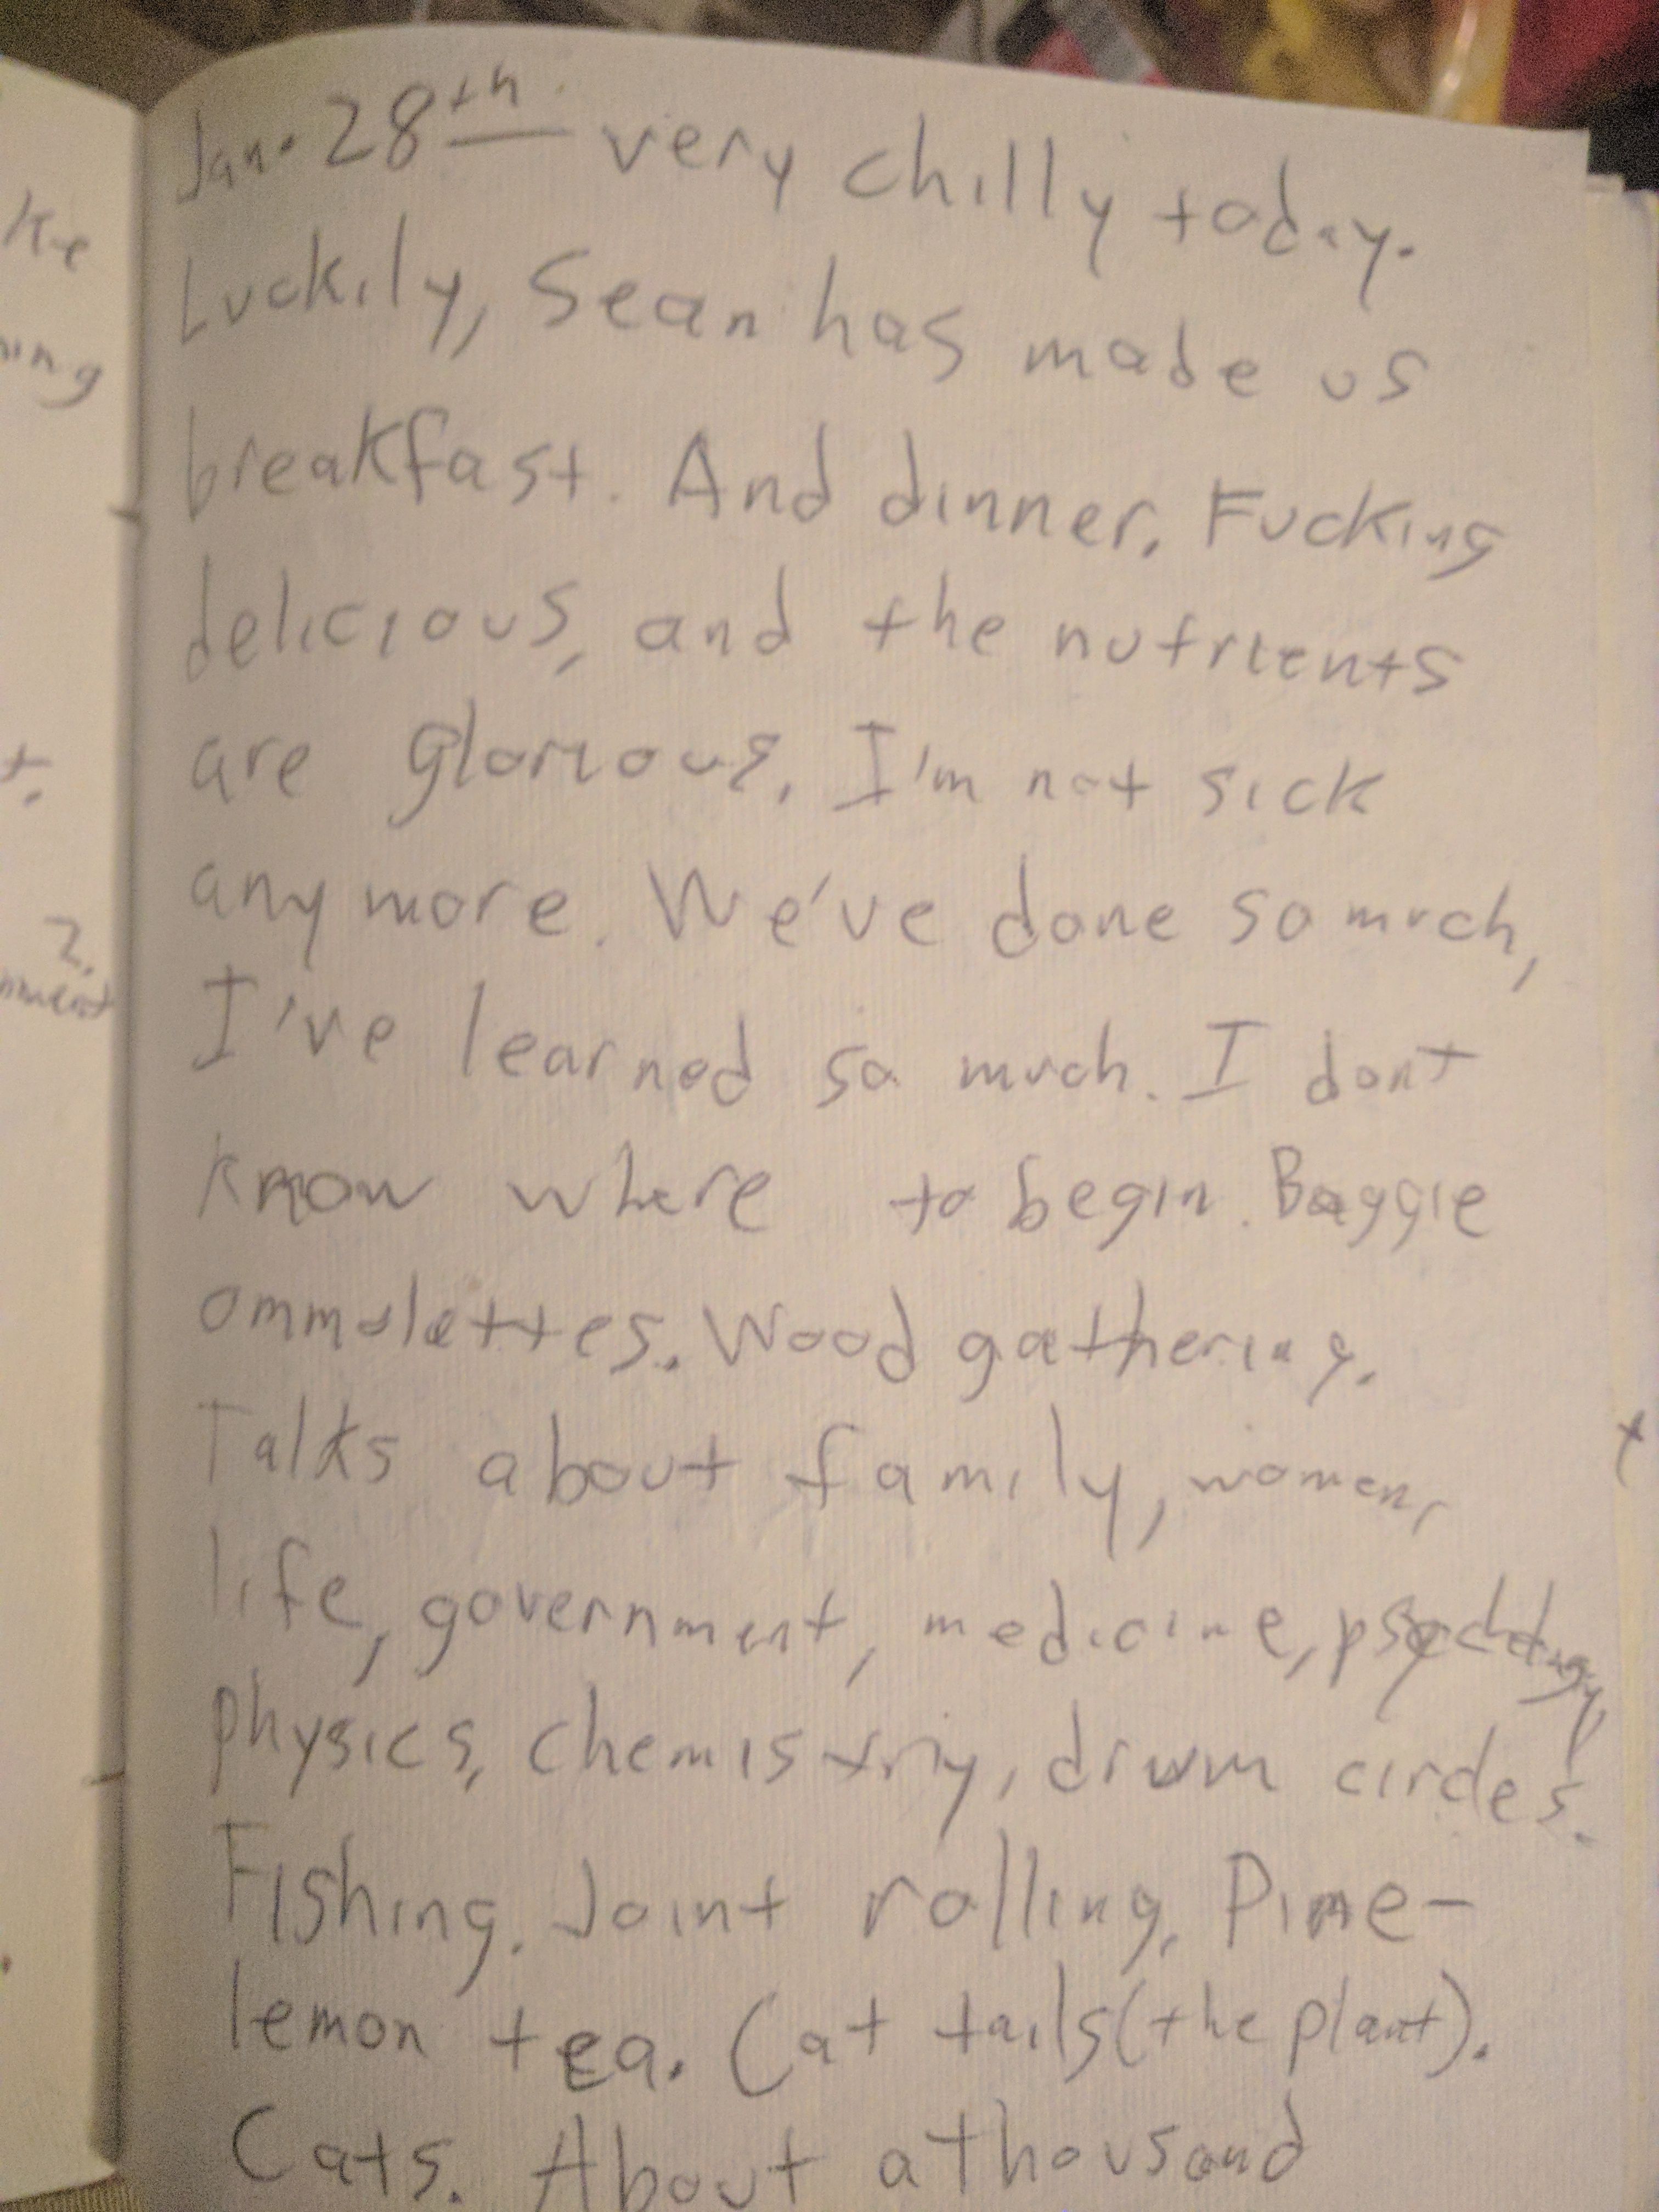 Jan. 28th very chilly today.
Luckily, Sean has made us
breakfast. And dinner. Fucking
delicious, and the nutrients
are glorious. I'm not sick
anymore. We've done so much,
I've learned so much. I dont
know where to begin. Baggie
ommolettes. Wood gathering.
Talks about family, women,
life, government, medicine, psychology,
physics, chemistry, drum circles.
Fishing. Joint rolling. Pine-
lemon tea. Cat tails (the plant).
Cats. About a thousand